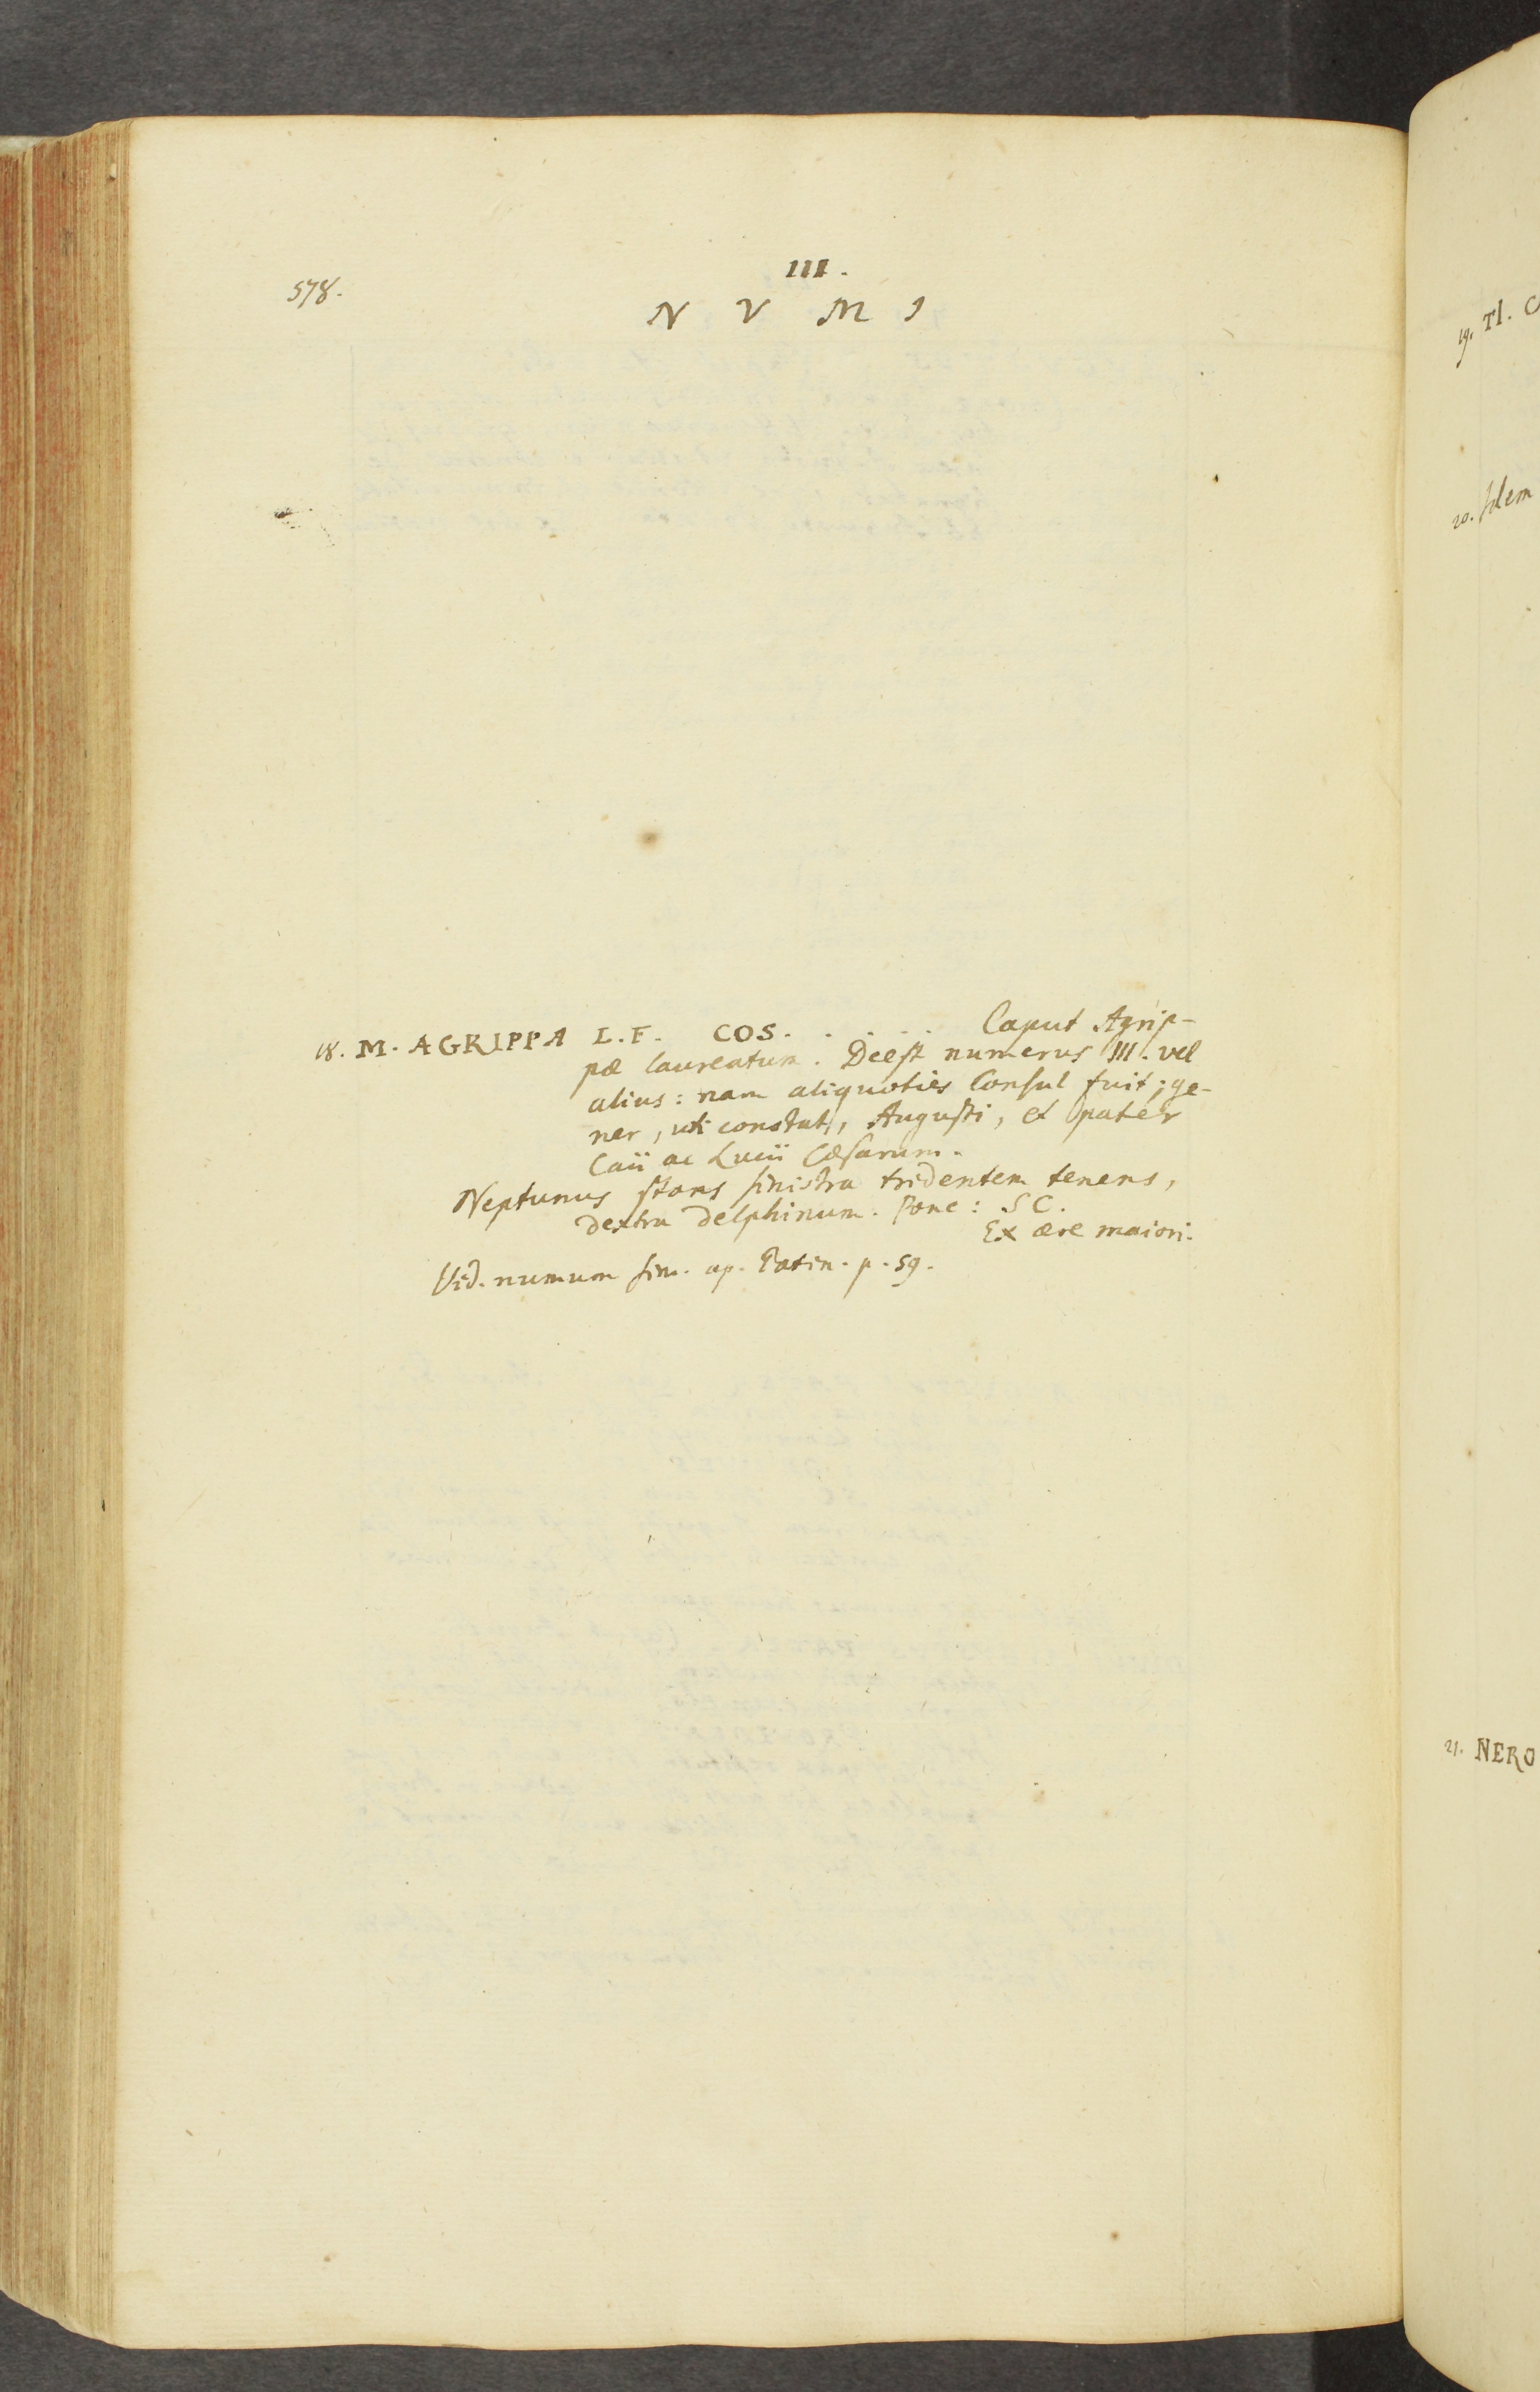 578.
III.
N V M I
18. M. AGRIPPA L. F. COS. . . . . Caput Agrip-
pæ laureatum. Deest numerus III. vel
alius: nam aliquoties Consul fuit; ge-
ner, uti constat, Augusti, et pater
Caii ac Lucii Cæsarum.
Neptunus stans sinistra tridentem tenens,
dextra delphinum. Pone: S C.
Ex ære maiori.
Vid. numum sim. ap. Patin. p. 59.
19. TI. C
20. Idem
21. NERO